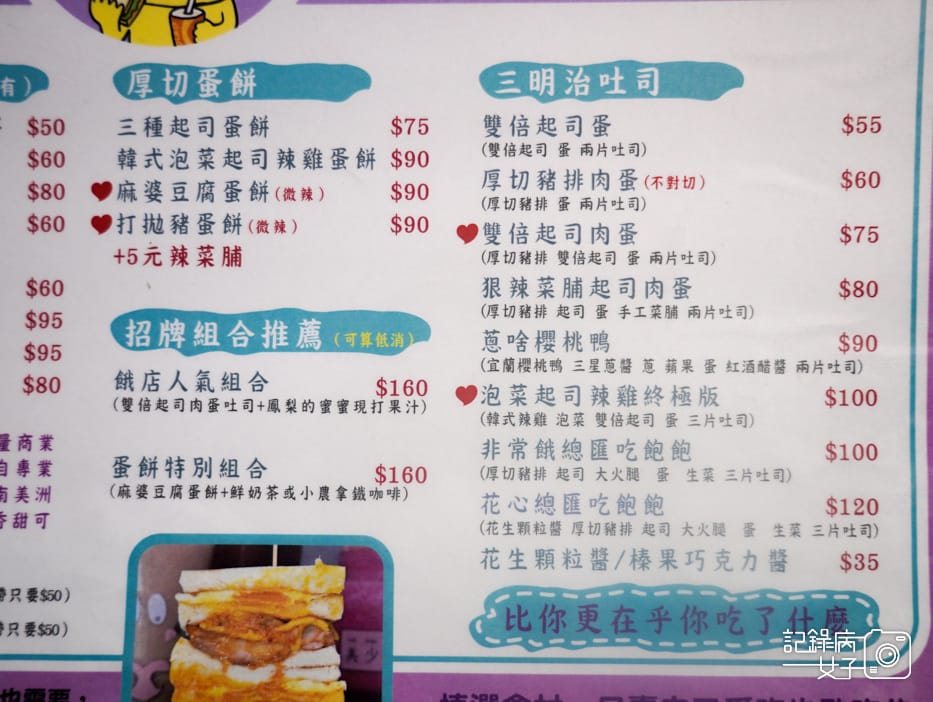 有）
$50
$60
$80
$60
$60
$95
$95
$80
量商業
自專業
南美洲
香甜可
帶只要$50）
帶只要$50）
厚切蛋餅
三種起司蛋餅 $75
韓式泡菜起司辣雞蛋餅 $90
麻婆豆腐蛋餅(微辣) $90
打拋豬蛋餅(微辣) $90
+5元辣菜脯
招牌組合推薦(可算低消)
餓店人氣組合 $160
(雙倍起司肉蛋吐司+鳳梨的蜜蜜現打果汁)
蛋餅特別組合 $160
(麻婆豆腐蛋餅+鮮奶茶或小農拿鐵咖啡)
三明治吐司
雙倍起司蛋 $55
(雙倍起司 蛋 兩片吐司)
厚切豬排肉蛋(不對切) $60
(厚切豬排 蛋 兩片吐司)
雙倍起司肉蛋 $75
(厚切豬排 雙倍起司 蛋 兩片吐司)
狠辣菜脯起司肉蛋 $80
(厚切豬排 起司 蛋 手工菜脯 兩片吐司)
蔥啥櫻桃鴨 $90
(宜蘭櫻桃鴨 三星蔥醬 蔥 蘋果 蛋 紅酒醋醬 兩片吐司)
泡菜起司辣雞終極版 $100
(韓式辣雞 泡菜 雙倍起司 蛋 三片吐司)
非常餓總匯吃飽飽 $100
(厚切豬排 起司 大火腿 蛋 生菜 三片吐司)
花心總匯吃飽飽 $120
(花生顆粒醬 厚切豬排 起司 大火腿 蛋 生菜 三片吐司)
花生顆粒醬/榛果巧克力醬 $35
比你更在乎你吃了什麼
記錄病女子